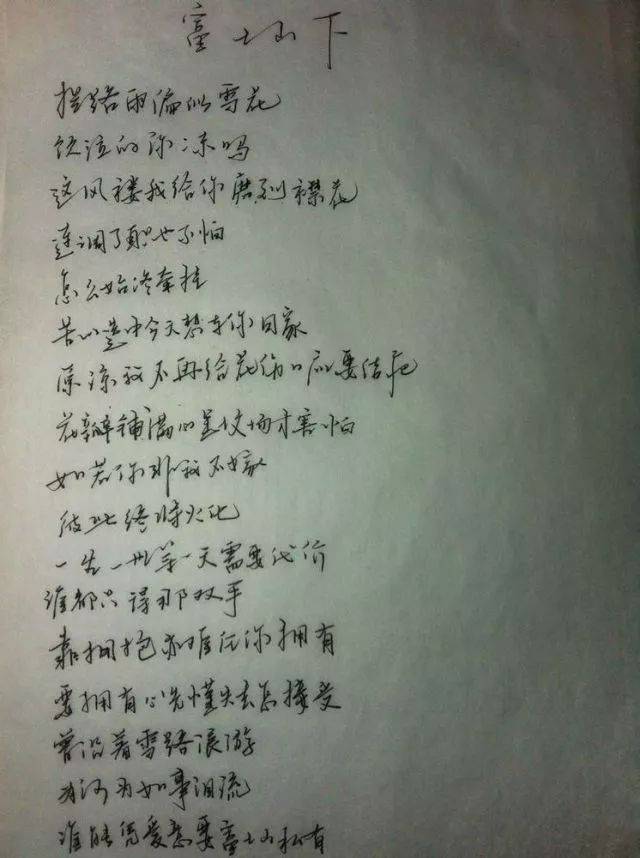 富士山下
路雨偏似雪花
饮泣的你凉吗
这风褛我给你磨到襟花
连调了职也不怕
怎么始终牵挂
苦心选中今天想车你回家
原谅我不再给花伤口应要结疤
花瓣铺满心里坟场才害怕
如若你非我不嫁
彼此终将火化
一生一世等一天需要代价
谁都只得那双手
靠拥抱亦难任你拥有
要拥有必先懂失去怎接受
曾沿着雪路浪游
为何为好事泪流
谁能凭爱意要富士山私有